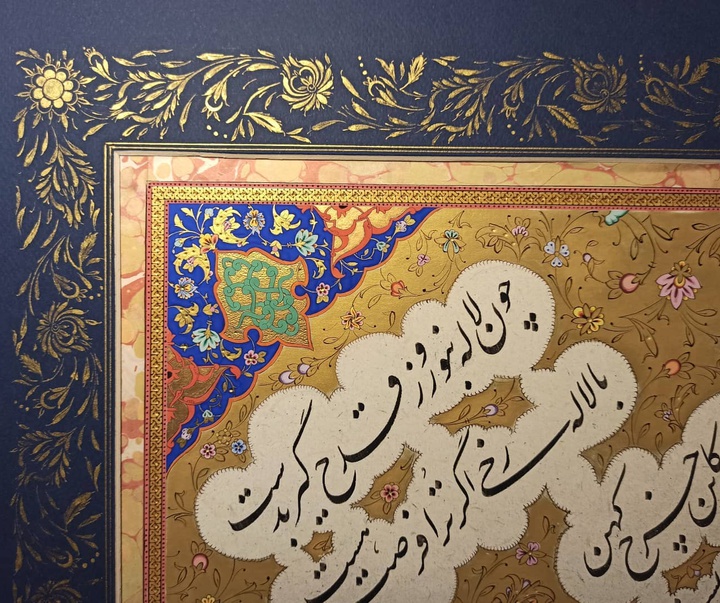 چون لاله بنوروز قدح گیر بدست
با لاله رخی اگر ترا فرصت هست
کاین چرخ کهن